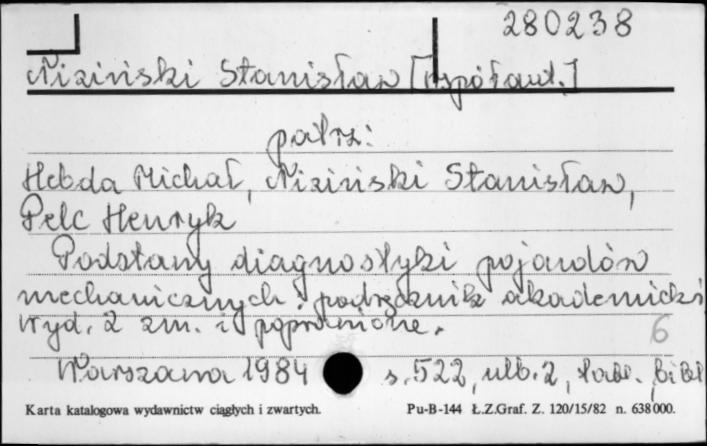 280238
Niziński Stanisław [współaut.]
patrz:
Hebda Michał, Niziński Stanisław,
Pelc Henryk
Podstawy diagnostyki pojazdów
mechanicznych : podręcznik akademicki
wyd. 2 zm. i poprawione.
6
Warszawa 1984 s. 522, nlb. 2, tabl. bibl
Karta katalogowa wydawnictw ciągłych i zwartych. Pu-B-144 Ł.Z.Graf. Z. 120/15/82 n. 638000.